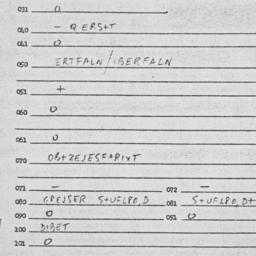 031 0
040 - QERS+T
041 0
050 ERTFALN/IBERFALN
051 +
060 0
061 0
070 OB+ZEJESFARIXT
071 - 072 -
080 GREJSER S+UFLPO,D 081 S+UFLPO,D+
090 0 091 0
100 DIBET
101 0